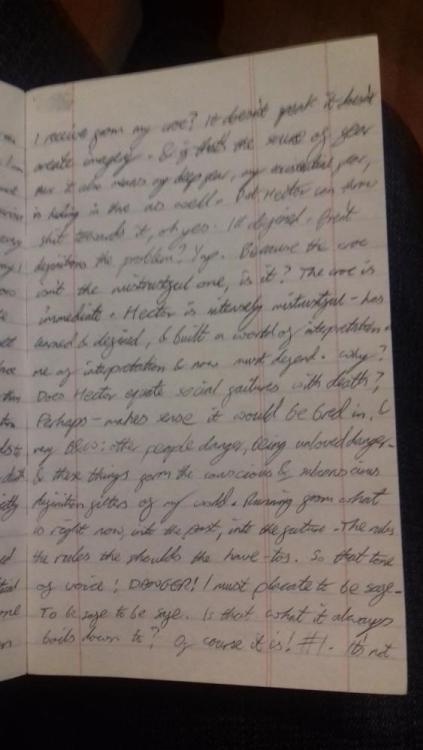 I receive from my croc? It doesn't speak it doesn't
create imagery. & if that's the source of fear
then it also means my deep fear, my existential fear,
is hiding in there as well. But Hector can throw
shit towards it, oh yes. I'll defend.
definitions the problem? Yup. Because the croc
isn't the mistrustful one, is it? The croc is
immediate. Hector is intensely mistrustful - has
learned & defined, & built a world of interpretation.
me of interpretation & now must defend. Why?
Does Hector equate social failures with death?
Perhaps - makes sense it would be bred in. &
my other people danger, being unloved danger-
& these things form the conscious & subconscious
definition filters of my world. Running from what
is right now, into the past, into the future. The rules
the rules the shoulds the have-tos. So that tone
of voice! DANGER! I must placate to be safe-
To be safe to be safe. Is that what it always
boils down to? Of course it is! #1. It's not